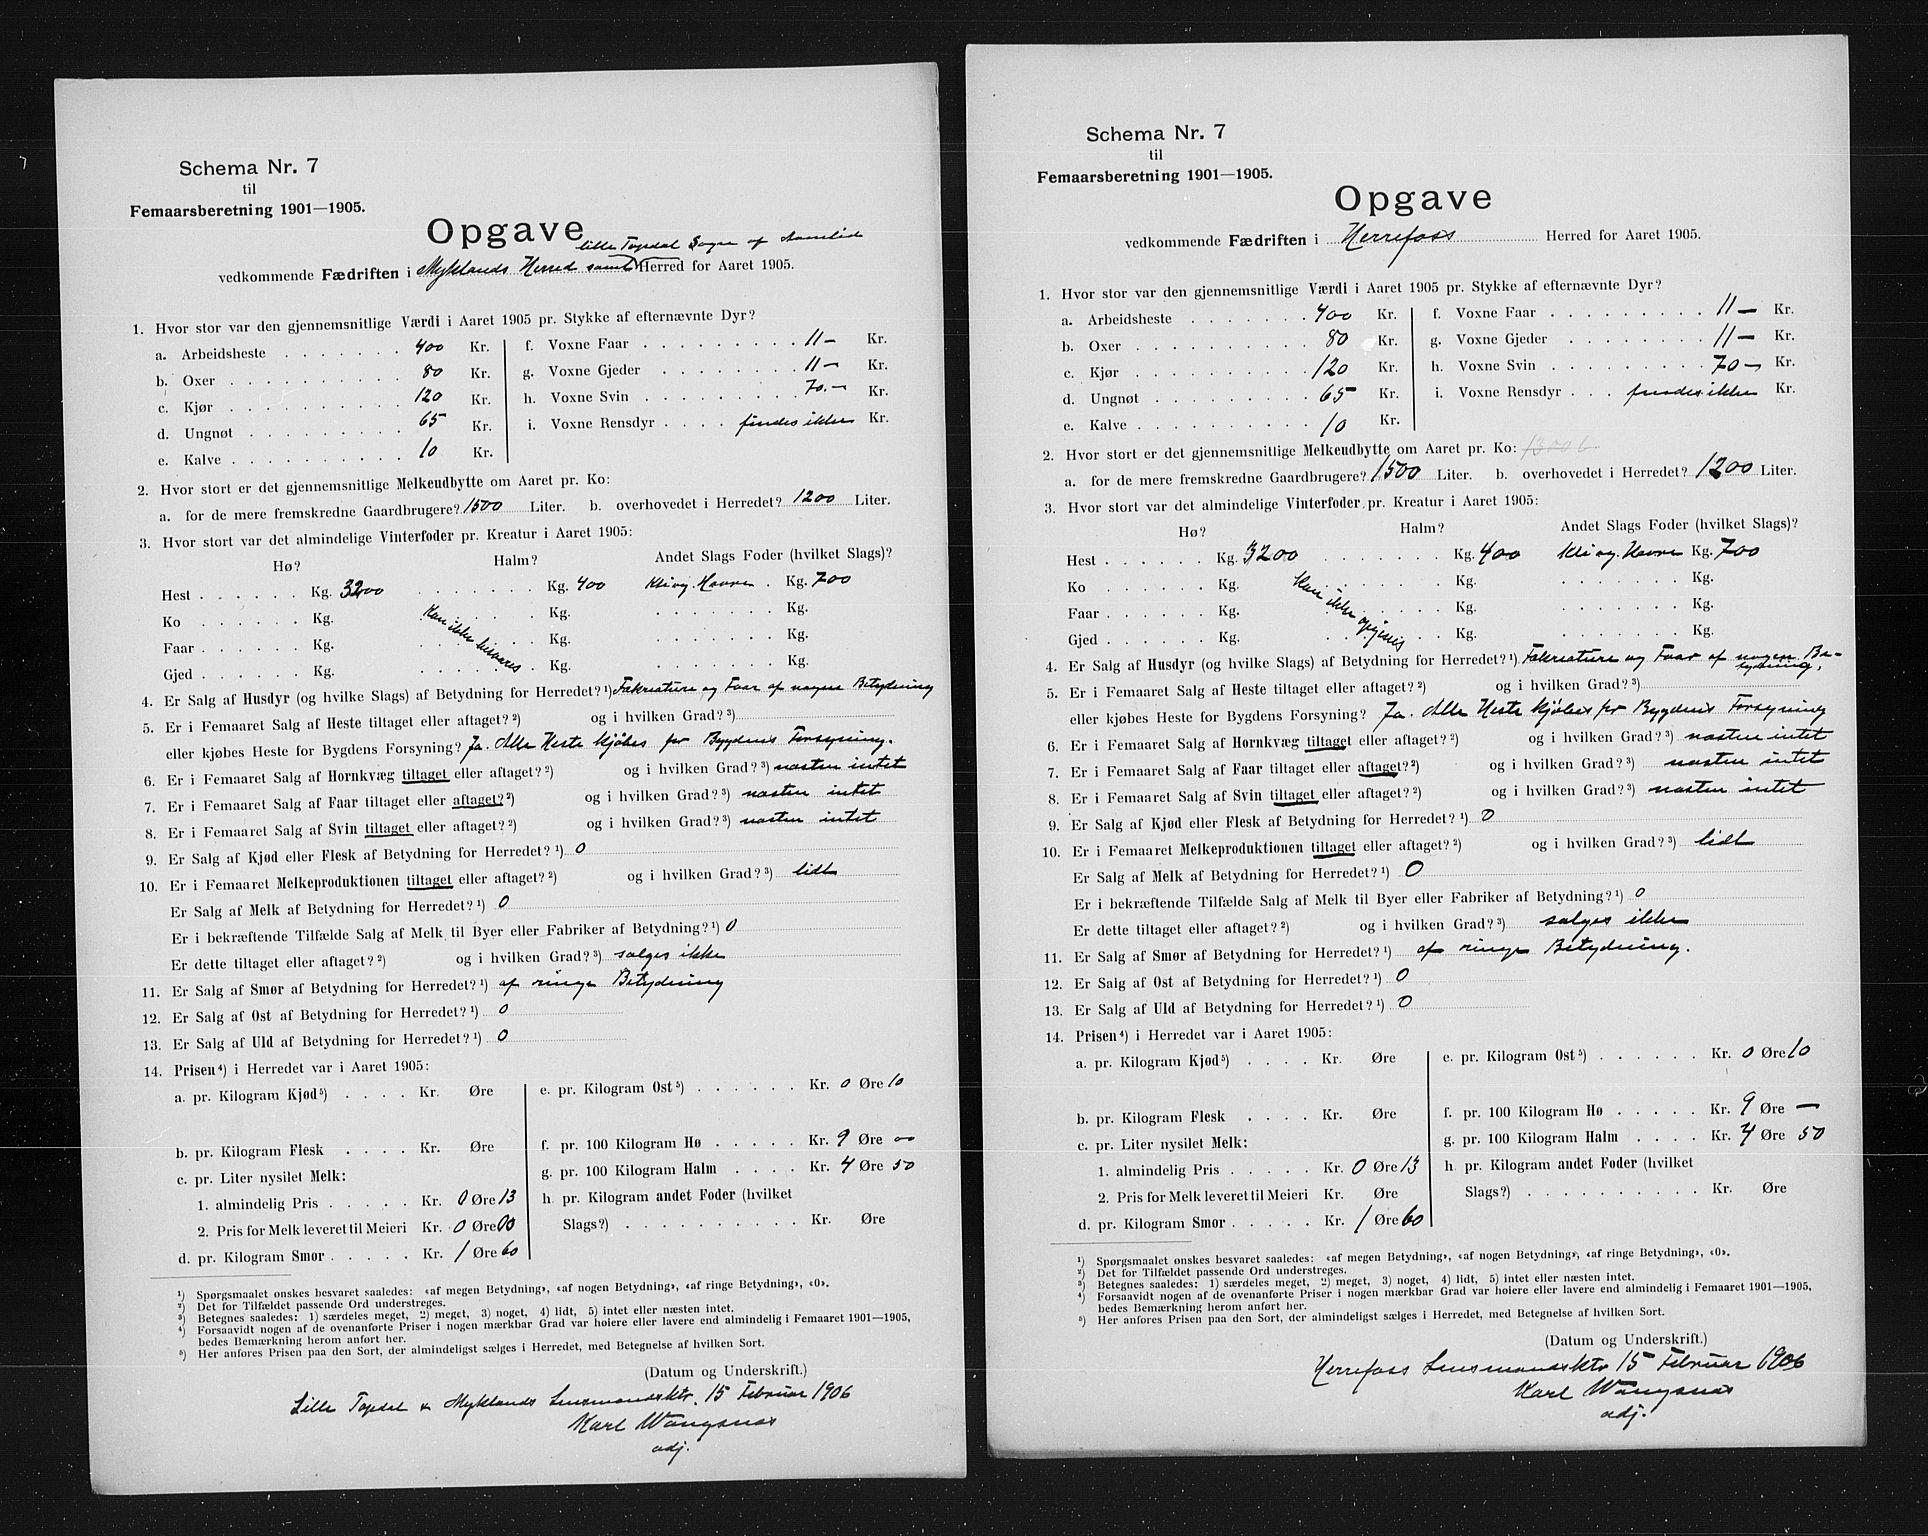 Schema Nr. 7
til
Femaarsberetning 1901—1905.
Opgave
Lille Topdal Sogn af Aamlid
vedkommende Fædriften i Myklands Herred samt Herred for Aaret 1905.
1. Hvor stor var den gjennemsnitlige Værdi i Aaret 1905 pr. Stykke af efternævnte Dyr?
a. Arbeidsheste 400 Kr. f. Voxne Faar 11— Kr.
b. Oxer 80 Kr. g. Voxne Gjeder 11— Kr.
c. Kjør 120 Kr. h. Voxne Svin 70.— Kr.
d. Ungnøt 65 Kr. i. Voxne Rensdyr findes ikke Kr.
e. Kalve 10 Kr.
2. Hvor stort er det gjennemsnitlige Melkeudbytte om Aaret pr. Ko:
a. for de mere fremskredne Gaardbrugere? 1500 Liter. b. overhovedet i Herredet? 1200 Liter.
3. Hvor stort var det almindelige Vinterfoder pr. Kreatur i Aaret 1905:
Hø? Halm? Andet Slags Foder (hvilket Slags)?
Hest Kg. 3200 Kg. 400 Kli og Havre Kg. 700
Ko Kg. Kan ikke besvares Kg. Kg.
Faar Kg. Kg. Kg.
Gjed Kg. Kg. Kg.
4. Er Salg af Husdyr (og hvilke Slags) af Betydning for Herredet? ¹) Fækreature og Faar af nogen Betydning
5. Er i Femaaret Salg af Heste tiltaget eller aftaget? ²) og i hvilken Grad? ³)
eller kjøbes Heste for Bygdens Forsyning? Ja. Alle Heste kjøbes for Bygdens Forsyning.
6. Er i Femaaret Salg af Hornkvæg tiltaget eller aftaget? ²) og i hvilken Grad? ³) næsten intet
7. Er i Femaaret Salg af Faar tiltaget eller aftaget? ²) og i hvilken Grad? ³) næsten intet
8. Er i Femaaret Salg af Svin tiltaget eller aftaget? ²) og i hvilken Grad? ³) næsten intet
9. Er Salg af Kjød eller Flesk af Betydning for Herredet? ¹) 0
10. Er i Femaaret Melkeproduktionen tiltaget eller aftaget? ²) og i hvilken Grad? ³) lidt
Er Salg af Melk af Betydning for Herredet? ¹) 0
Er i bekræftende Tilfælde Salg af Melk til Byer eller Fabriker af Betydning? ¹) 0
Er dette tiltaget eller aftaget? ²) og i hvilken Grad? ³) sælges ikke
11. Er Salg af Smør af Betydning for Herredet? ¹) af ringe Betydning
12. Er Salg af Ost af Betydning for Herredet? ¹) 0
13. Er Salg af Uld af Betydning for Herredet? ¹) 0
14. Prisen ⁴) i Herredet var i Aaret 1905:
a. pr. Kilogram Kjød ⁵) Kr. Øre e. pr. Kilogram Ost ⁵) Kr. 0 Øre 10
b. pr. Kilogram Flesk Kr. Øre f. pr. 100 Kilogram Hø Kr. 9 Øre 00
c. pr. Liter nysilet Melk: g. pr. 100 Kilogram Halm Kr. 4 Øre 50
1. almindelig Pris Kr. 0 Øre 13 h. pr. Kilogram andet Foder (hvilket
2. Pris for Melk leveret til Meieri Kr. 0 Øre 00 Slags?) Kr. Øre
d. pr. Kilogram Smør Kr. 1 Øre 60
¹) Spørgsmaalet ønskes besvaret saaledes: «af megen Betydning», «af nogen Betydning», «af ringe Betydning», «0».
²) Det for Tilfældet passende Ord understreges.
³) Betegnes saaledes: 1) særdeles meget, 2) meget, 3) noget, 4) lidt, 5) intet eller næsten intet.
⁴) Forsaavidt nogen af de ovenanførte Priser i nogen mærkbar Grad var høiere eller lavere end almindelig i Femaaret 1901—1905,
bedes Bemærkning herom anført her.
⁵) Her anføres Prisen paa den Sort, der almindeligst sælges i Herredet, med Betegnelse af hvilken Sort.
(Datum og Underskrift.)
Lille Topdal & Myklands Lensmandsktr. 15 Februar 1906
Karl Wangsnæs
adj.
Schema Nr. 7
til
Femaarsberetning 1901—1905.
Opgave
vedkommende Fædriften i Herrefoss Herred for Aaret 1905.
1. Hvor stor var den gjennemsnitlige Værdi i Aaret 1905 pr. Stykke af efternævnte Dyr?
a. Arbeidsheste 400 Kr. f. Voxne Faar 11— Kr.
b. Oxer 80 Kr. g. Voxne Gjeder 11— Kr.
c. Kjør 120 Kr. h. Voxne Svin 70— Kr.
d. Ungnøt 65 Kr. i. Voxne Rensdyr findes ikke Kr.
e. Kalve 10 Kr.
2. Hvor stort er det gjennemsnitlige Melkeudbytte om Aaret pr. Ko:
a. for de mere fremskredne Gaardbrugere? 1500 Liter. b. overhovedet i Herredet? 1200 Liter.
3. Hvor stort var det almindelige Vinterfoder pr. Kreatur i Aaret 1905:
Hø? Halm? Andet Slags Foder (hvilket Slags)?
Hest Kg. 3200 Kg. 400 Kli og Havre Kg. 700
Ko Kg. Kan ikke opgives Kg. Kg.
Faar Kg. Kg. Kg.
Gjed Kg. Kg. Kg.
4. Er Salg af Husdyr (og hvilke Slags) af Betydning for Herredet? ¹) Fækreature og Faar af nogen Be-
tydning.
5. Er i Femaaret Salg af Heste tiltaget eller aftaget? ²) og i hvilken Grad? ³)
eller kjøbes Heste for Bygdens Forsyning? Ja. Alle Heste kjøbes for Bygdens Forsyning
6. Er i Femaaret Salg af Hornkvæg tiltaget eller aftaget? ²) og i hvilken Grad? ³) næsten intet
7. Er i Femaaret Salg af Faar tiltaget eller aftaget? ²) og i hvilken Grad? ³) næsten intet
8. Er i Femaaret Salg af Svin tiltaget eller aftaget? ²) og i hvilken Grad? ³) næsten intet
9. Er Salg af Kjød eller Flesk af Betydning for Herredet? ¹) 0
10. Er i Femaaret Melkeproduktionen tiltaget eller aftaget? ²) og i hvilken Grad? ³) lidt
Er Salg af Melk af Betydning for Herredet? ¹) 0
Er i bekræftende Tilfælde Salg af Melk til Byer eller Fabriker af Betydning? ¹) 0
Er dette tiltaget eller aftaget? ²) og i hvilken Grad? ³) sælges ikke
11. Er Salg af Smør af Betydning for Herredet? ¹) af ringe Betydning.
12. Er Salg af Ost af Betydning for Herredet? ¹) 0
13. Er Salg af Uld af Betydning for Herredet? ¹) 0
14. Prisen ⁴) i Herredet var i Aaret 1905:
a. pr. Kilogram Kjød ⁵) Kr. Øre e. pr. Kilogram Ost ⁵) Kr. 0 Øre 10
b. pr. Kilogram Flesk Kr. Øre f. pr. 100 Kilogram Hø Kr. 9 Øre —
c. pr. Liter nysilet Melk: g. pr. 100 Kilogram Halm Kr. 4 Øre 50
1. almindelig Pris Kr. 0 Øre 13 h. pr. Kilogram andet Foder (hvilket
2. Pris for Melk leveret til Meieri Kr. Øre Slags?) Kr. Øre
d. pr. Kilogram Smør Kr. 1 Øre 60
¹) Spørgsmaalet ønskes besvaret saaledes: «af megen Betydning», «af nogen Betydning», «af ringe Betydning», «0».
²) Det for Tilfældet passende Ord understreges.
³) Betegnes saaledes: 1) særdeles meget, 2) meget, 3) noget, 4) lidt, 5) intet eller næsten intet.
⁴) Forsaavidt nogen af de ovenanførte Priser i nogen mærkbar Grad var høiere eller lavere end almindelig i Femaaret 1901—1905,
bedes Bemærkning herom anført her.
⁵) Her anføres Prisen paa den Sort, der almindeligst sælges i Herredet, med Betegnelse af hvilken Sort.
(Datum og Underskrift.)
Herrefoss Lensmandsktr 15 Februar 1906
Karl Wangsnæs
adj.